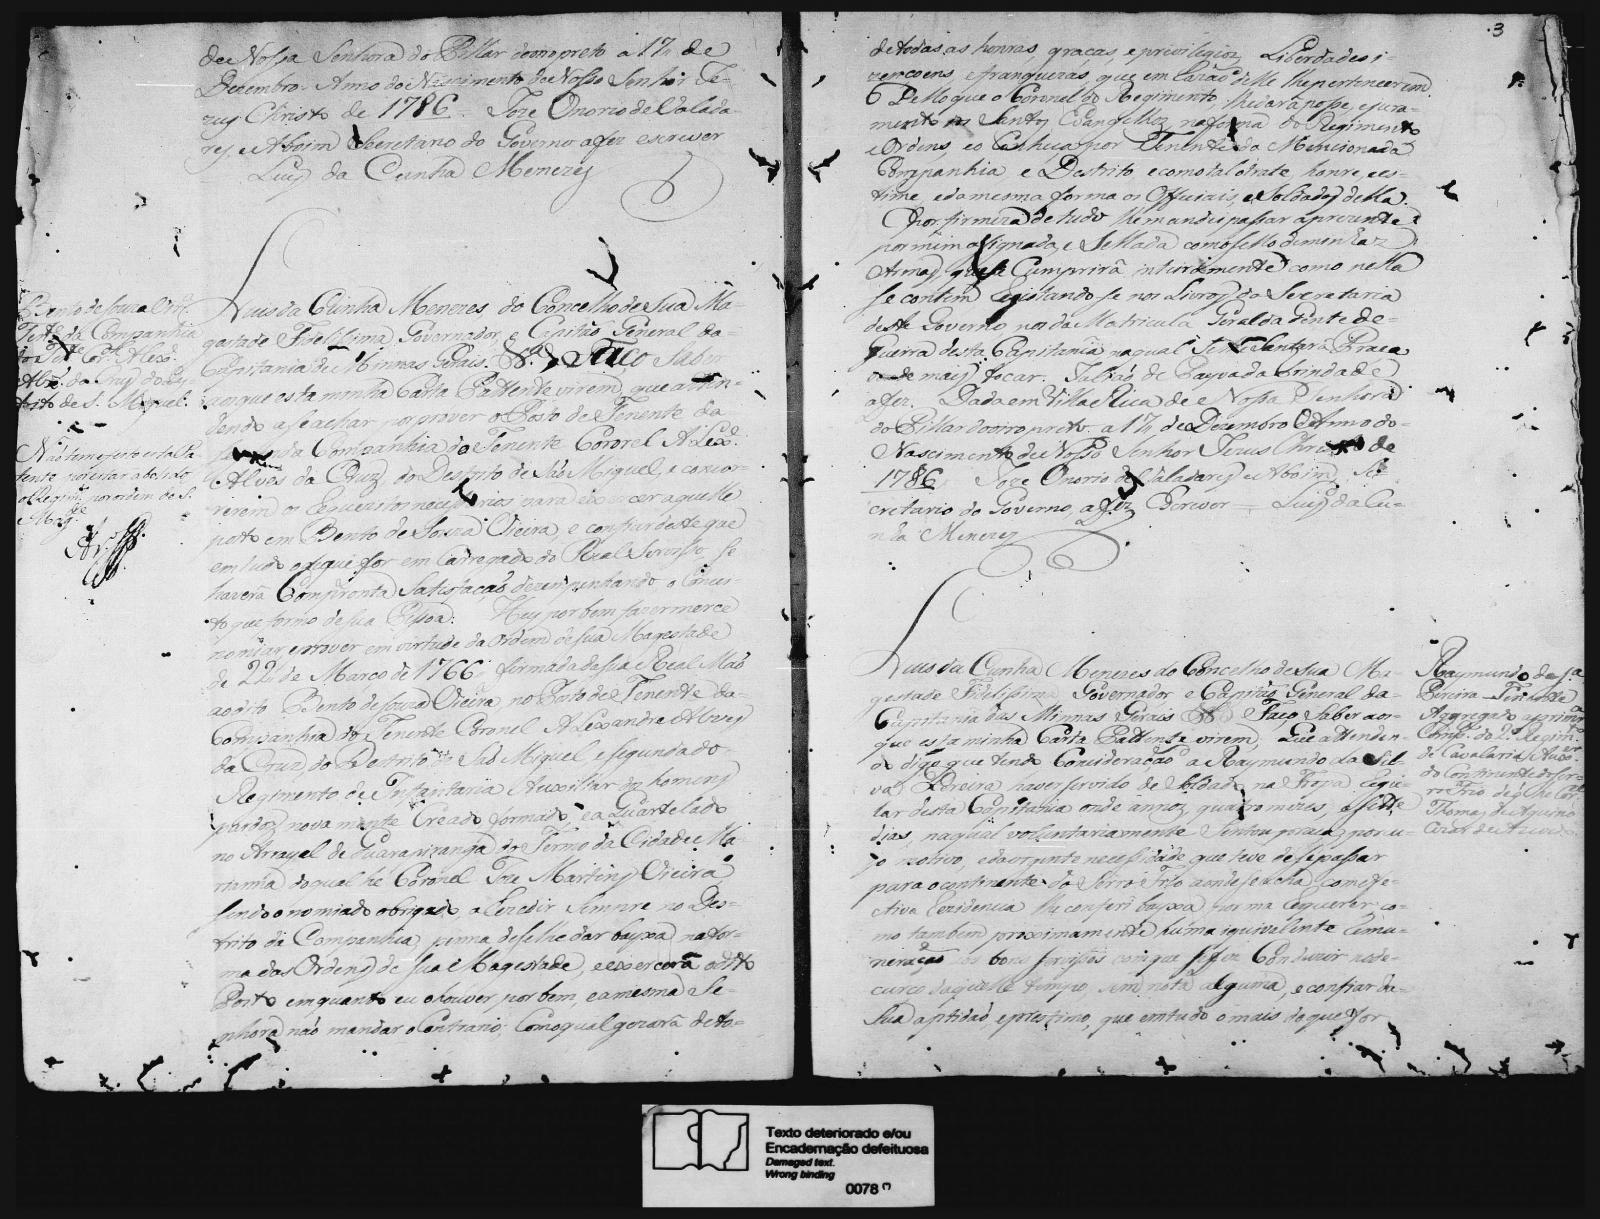 de Nossa Senhora do Pillar do ouropreto a 17 de
Dezembro. Anno do Nascimento de Nosso Senhor Je-
zus Christo de 1786. Joze Onorio de Valada-
res e Aboim Secretario do Governo a fez escrever
Luis da Cunha Menezes
Bento de Souza Vieyra
Tente da Companhia
do Tente Corel Alexe
Alvs da Cruz do Des-
trito de S. Miguel.
Não teve efeito esta Pa-
tente por estar abolido
o Regimto por ordem de S.
Magde
Luis da Cunha Menezes do Concelho de Sua Ma-
gestade Fidelissima, Governador, e Capitão General da
Capitania de Minnas Gerais. &ª Faço Saber
aos que esta minha Carta Pattente virem, que atten-
dendo a se achar por prover o Posto de Tenente da
Companhia do Tenente Coronel Alexe
Alves da Cruz do Destrito de São Miguel, e concor-
rerem os requezitos necessarios para exercer aquelle
posto em Bento de Souza Vieira, e confiar deste que
em tudo o de que for emcarregado do Real Serviço, se
haverá com pronta satisfação dezempenhando o Concei-
to que formo de sua Pessoa: Hey por bem fazer merce
nomiar, e prover em virtude da Ordem de sua Magestade
de 22 de Marco de 1766 firmada da sua Real Mão
ao dito Bento de Souza Vieira no Posto de Tenente da
Companhia do Tenente Coronel Alexandre Alvres
da Cruz, do Destrito de São Miguel e segundo do
Regimento de Infantaria Auxilliar dos homens
pardos novamente Creado formado, e aquartelado
no Arrayal de Guarapiranga do Termo da Cidade Ma-
rianna do qual he Coronel Joze Martins Vieira
sendo o nomiado obrigado a Rezedir sempre no Des-
trito da Companhia, penna de se lhe dar bayxa na for-
ma das Ordens de sua Magestade, e exercerá o ditto
Posto emquanto eu o houver por bem, e a mesma Se-
nhora não mandar o Contrario; Com o qual gozará de to-
3
de todas as honras, graças, e privilegios, Liberdades i-
zempcoens, e franquezas, que em razão delle lhe pertencerem.
Pello que o Coronel do Regimento, lhe dará posse, e jura-
mento aos Santos Evangelhos na forma do Regimento
e Ordens, e o Conheça por Tenente da Mencionada
Companhia e Destrito e como tal o trate, honre, e es-
time, e da mesma forma os Officiais, e Soldados della.
Por firmeza de tudo lhe mandei passar a prezente
por mim asignada, e Sellada com o sello de minhas
Armas, que se Cumprirá inteiramente como nella
se contém Registando-se nos Livros da Secretaria
deste Governo, nos da Matricula Geral da Gente de
Guerra desta Capitania na qual se lhe sentará Praça
e os de mais a tocar. Falcão de Tayvada brindade
a fez. Dada em Villa Rica de Nossa Senhora
do Pillar do oiro preto. a 17 de Dezembro Anno do
Nascimento de Nosso Senhor Jezus Christo de
1786 Joze Onorio de Valadares e Aboim Se-
cretario do Governo, a fez Escrever = Luis da Cu-
nha Menezes
Luis da Cunha Menezes do Concelho de sua Ma-
gestade Fidelissima Governador e Capitão General da
Capitania das Minnas Gerais &ª Faço Saber aos
que esta minha Carta Pattente virem, Que atenden-
do digo que tendo Concideração a Raymundo da Sil-
va Pereira haver servido de Soldado na Tropa Regu-
lar desta Capitania onze annos quatro mezes, e sette
dias, na qual voluntariamente Sentou praça, por cu-
jo motivo, e da urgente necessidade que teve de se passar
para o continente do Serro Frio aonde se acha com efe-
ctiva Rezidencia lhe conferi bayxa por ma requerer co-
mo tambem proximamente huma iquivalente remu-
neração aos bons serviços com que se fez Conduzir no de-
curco daquelle tempo sem nota alguma, e confiar da
sua aptidão e prestimo, que em tudo o mais de que for
Raymundo da Sa
Pereira Tenente
Aggregado a primra
Compa do 2º Regimto
de Cavalaria Auxar
do Continente do Ser-
ro Frio de q he Corel
Thomas de Aquino
Cezar de Azevedo
Texto deteriorado e/ou
Encadernação defeituosa
Damaged text.
Wrong binding
0078 (*)